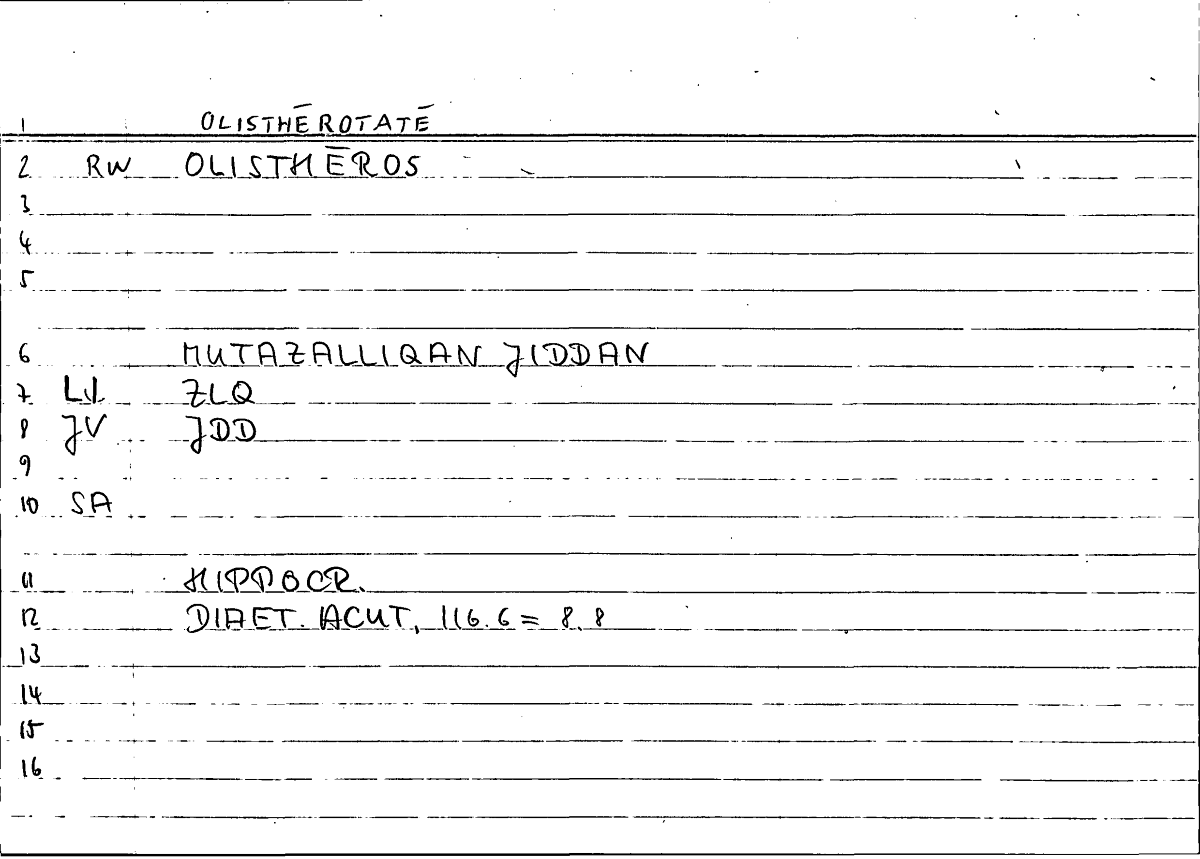 1 OLISTHĒROTATĒ
2 RW OLISTHĒROS
3
4
5
6 MUTAZALLIQAN JIDDAN
7 ZLQ
8 JV JDD
9
10 SA
11 HIPPOCR.
12 DIAET. ACUT, 116.6 = 8.8
13
14
15
16